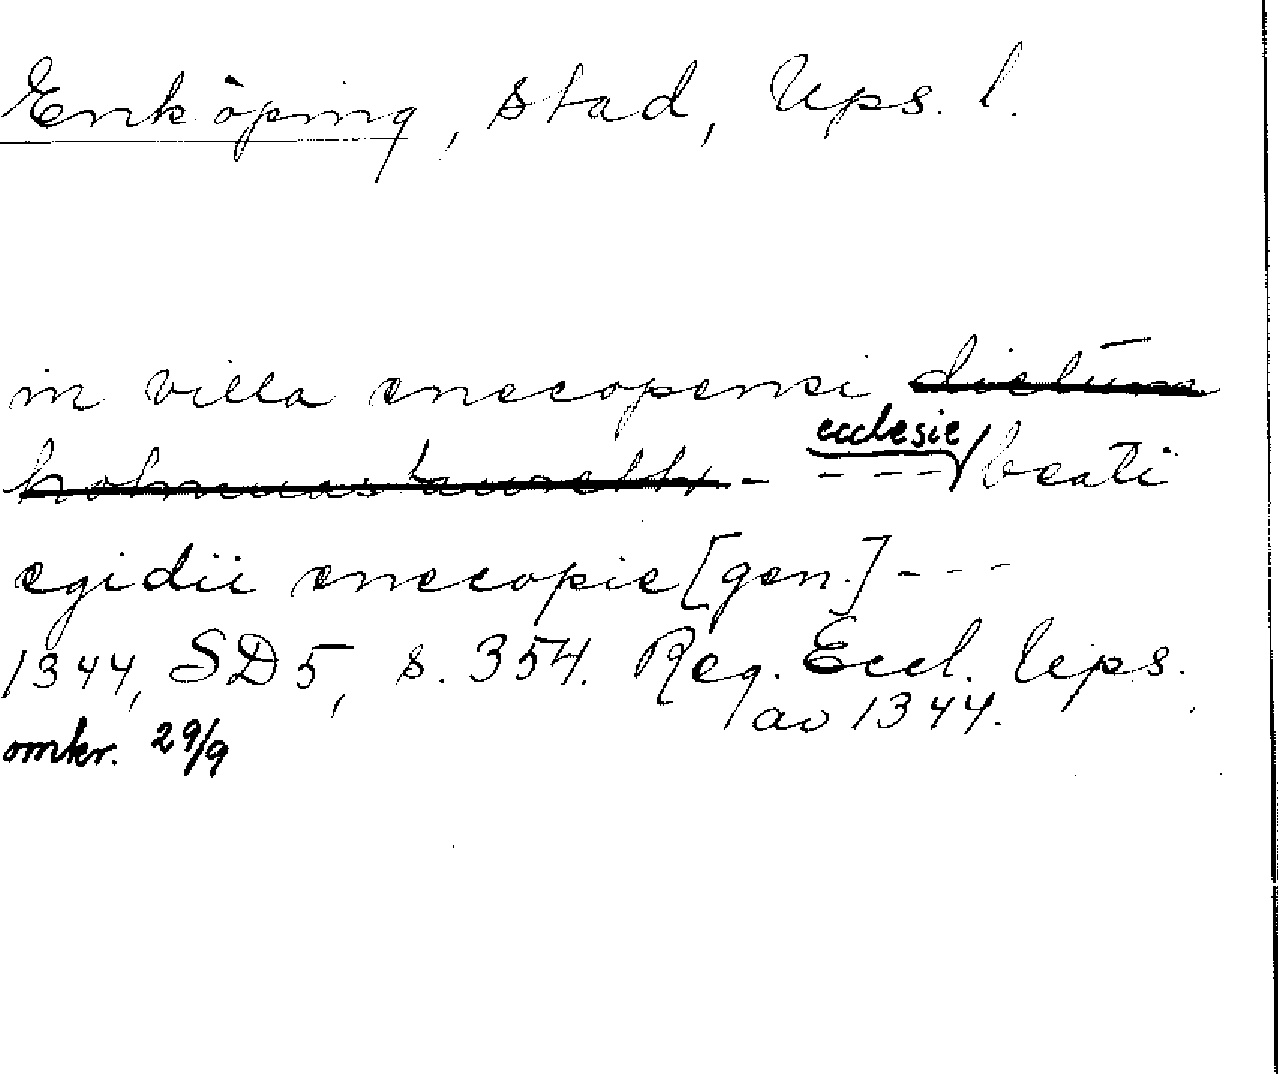 Enköping, stad, Ups. l.
in villa enecopensi dictum
- ecclesie - - - beati
egidii enecopie [gen.] - - -
1344, SD 5, s. 354. Reg. Eccl. Ups.
av 1344.
omkr. 29/9